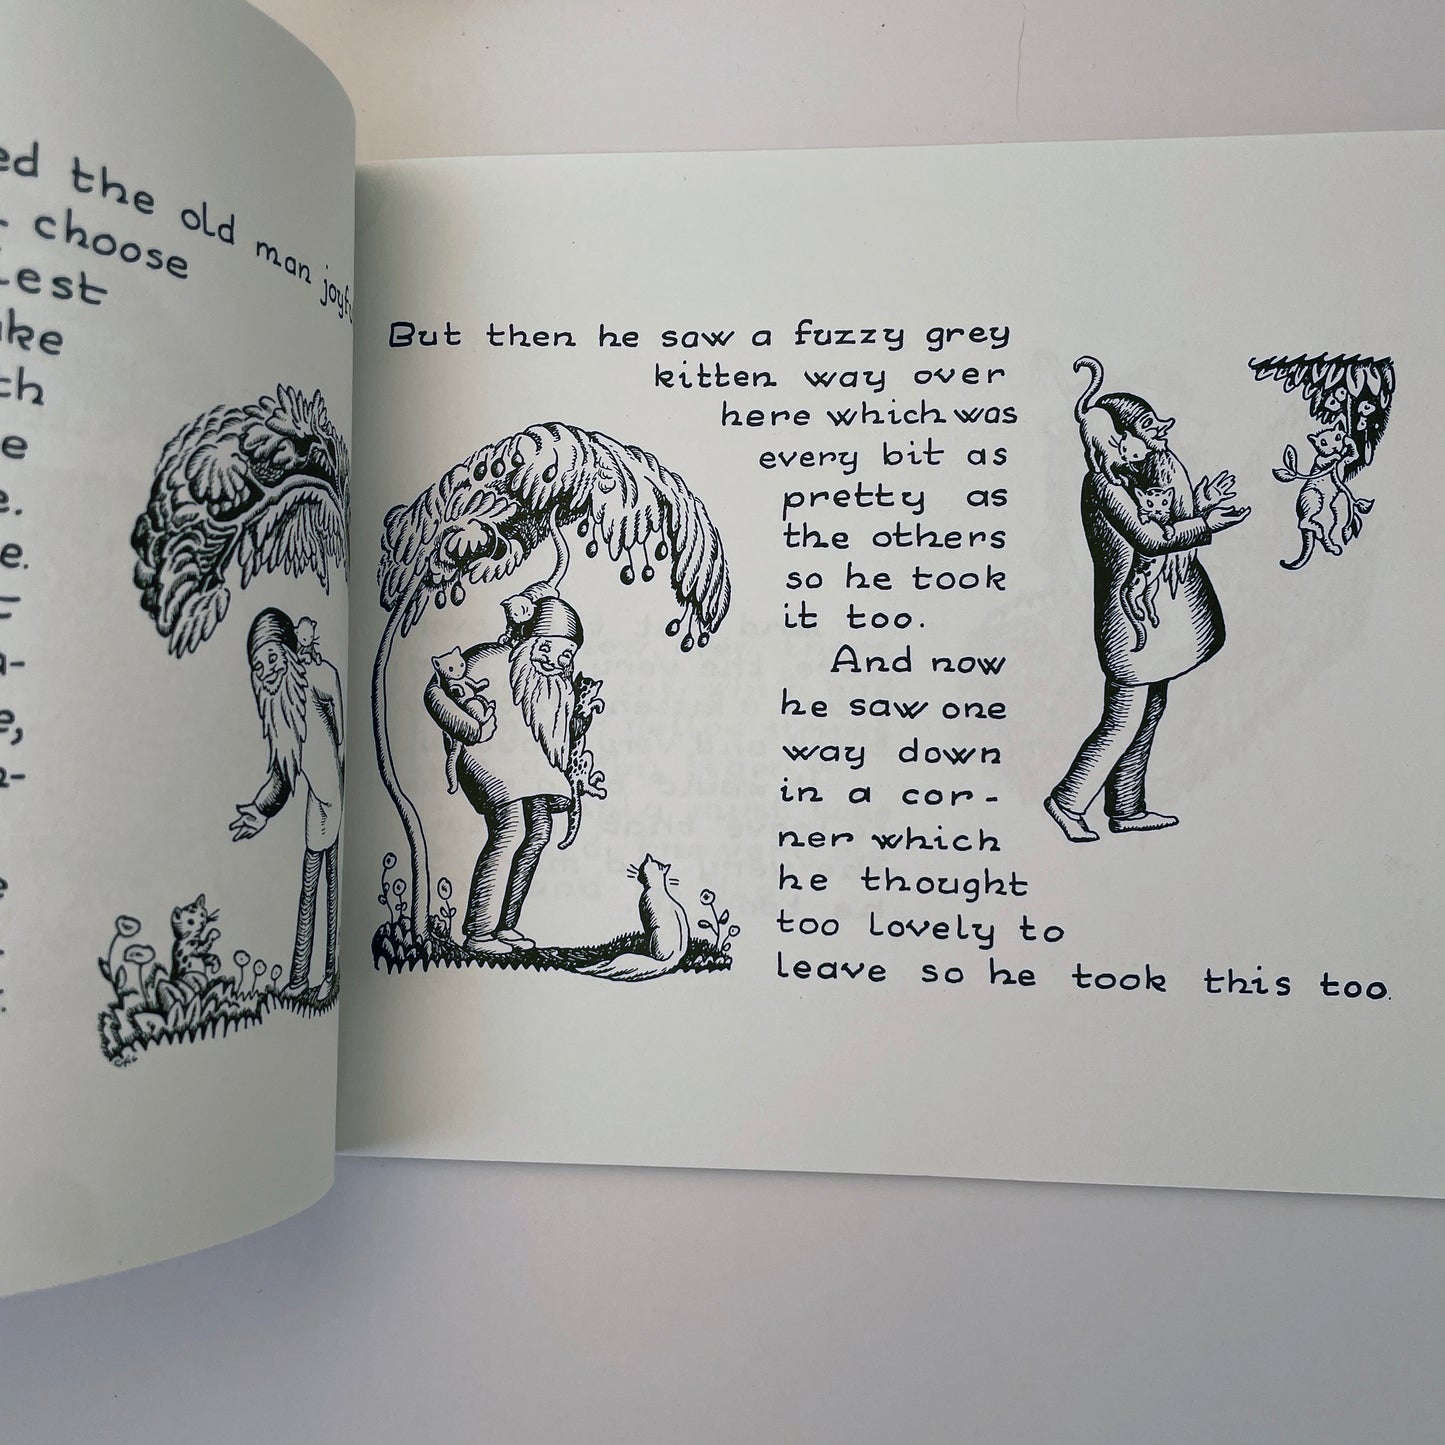 the old man
choose
But then he saw a fuzzy grey
kitten way over
here which was
every bit as
pretty as
the others
so he took
it too.
And now
he saw one
way down
in a cor-
ner which
he thought
too lovely to
leave so he took this too.